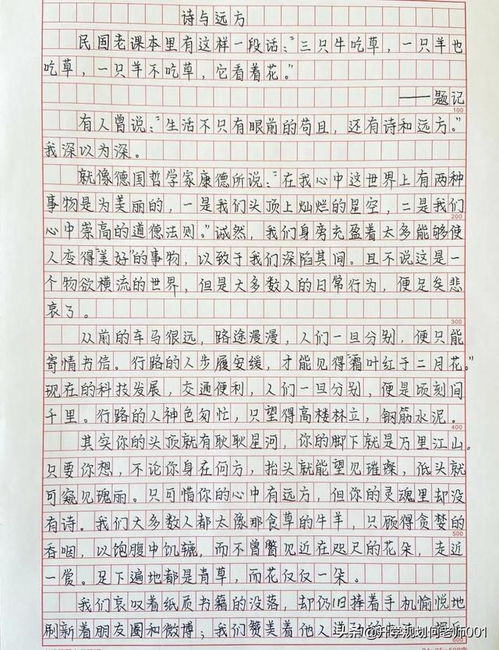 诗与远方
民国老课本里有这样一段话:"三只牛吃草,一只羊也
吃草,一只羊不吃草,它看着花。"
——题记
100
有人曾说:"生活不只有眼前的苟且,还有诗和远方。"
我深以为深。
就像德国哲学家康德所说:"在我心中这世界上有两种
事物是为美丽的,一是我们头顶上灿烂的星空,二是我们
200
心中崇高的道德法则。"诚然,我们身旁充盈着太多能够使
人变得"美好"的事物,以致于我们深陷其间。且不说这是一
个物欲横流的世界,但是大多数人的日常行为,便足矣悲
哀了。
300
从前的车马很远,路途漫漫,人们一旦分别,便只能
寄情书信。行路的人步履安缓,才能见得"霜叶红于二月花。"
现在的科技发展,交通便利,人们一旦分别,便是顷刻间
千里。行路的人神色匆忙,只望得高楼林立,钢筋水泥。
400
其实你的头顶就有耿耿星河,你的脚下就是万里江山。
只要你想,不论你身在何方,抬头就能望见璀璨,低头就
可窥见瑰丽。只可惜你的心中有远方,但你的灵魂里却没
有诗。我们大多数人都太像那食草的牛羊,只顾得贪婪的
500
吞咽,以饱腹中饥辘,而不曾瞥见近在咫尺的花朵,走近
一赏。足下遍地都是青草,而花仅仅一朵。
我们哀叹着纸质书籍的没落,却仍旧捧着手机愉悦地
刷新着朋友圈和微博;我们赞美着他人
600